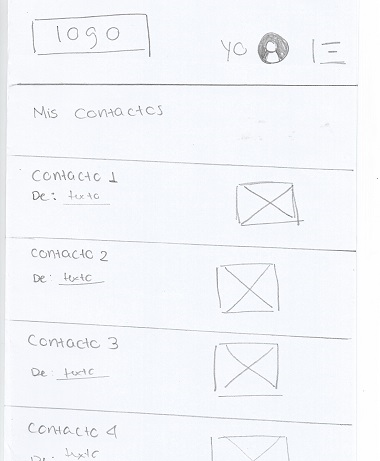 logo
yo
Mis contactos
Contacto 1
De: texto
contacto 2
De: texto
Contacto 3
De: texto
Contacto 4
De: texto